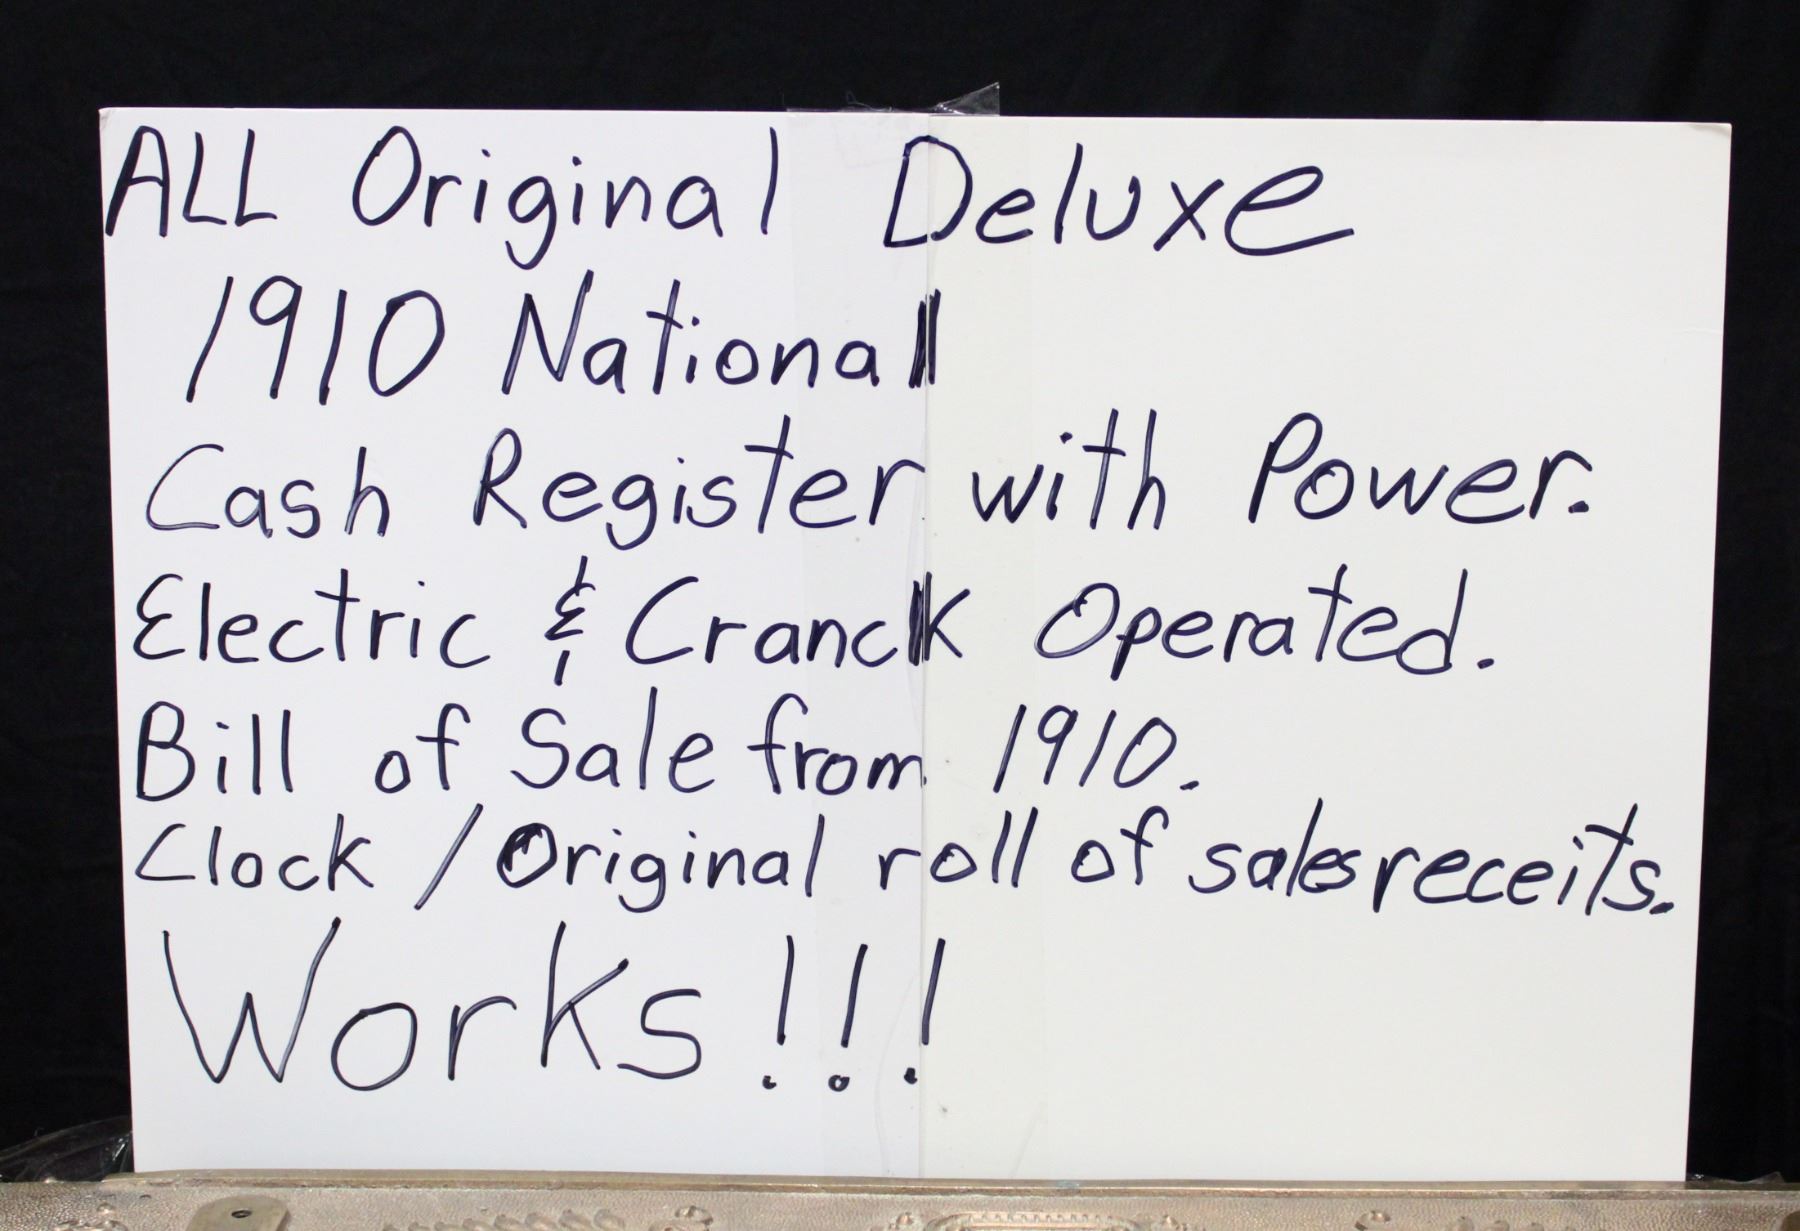 ALL Original Deluxe
1910 National
Cash Register with Power.
Electric & Cranck Operated.
Bill of Sale from 1910.
Clock / Original roll of sales receits.
Works!!!